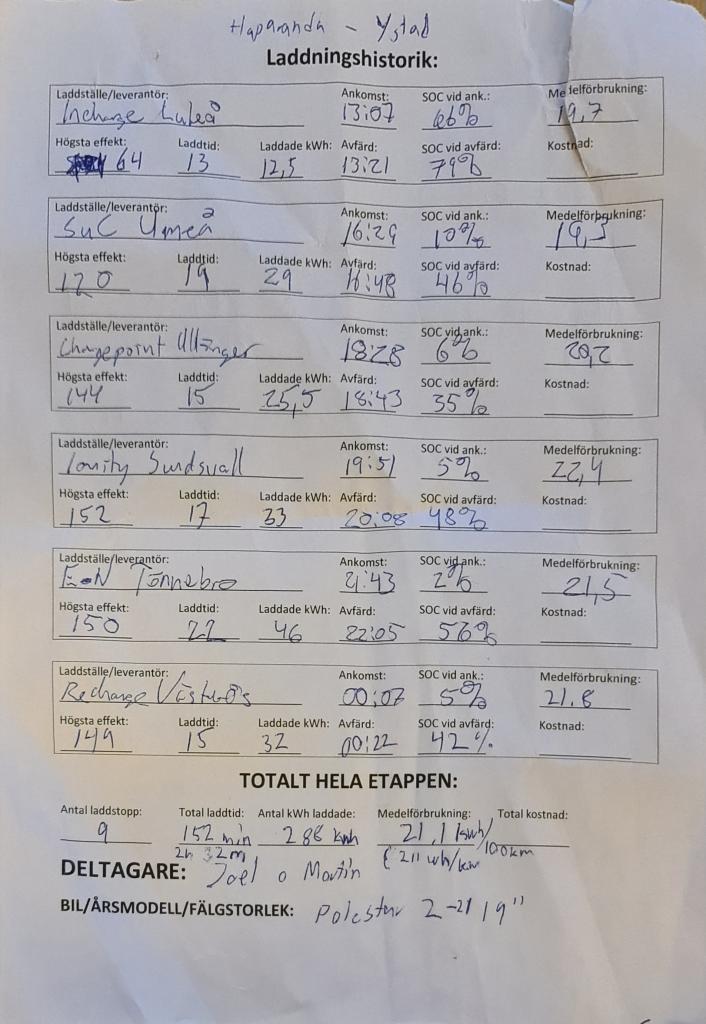 Haparanda - Ystad
Laddningshistorik:
Laddställe/leverantör: Ankomst: SOC vid ank.: Medelförbrukning:
Incharge Luleå 13:07 66% 19,7
Högsta effekt: Laddtid: Laddade kWh: Avfärd: SOC vid avfärd: Kostnad:
64 13 12,5 13:21 79%
Laddställe/leverantör: Ankomst: SOC vid ank.: Medelförbrukning:
SuC Umeå 16:29 10% 19,5
Högsta effekt: Laddtid: Laddade kWh: Avfärd: SOC vid avfärd: Kostnad:
120 19 29 16:48 46%
Laddställe/leverantör: Ankomst: SOC vid ank.: Medelförbrukning:
Chargepoint Ullånger 18:28 6% 20,2
Högsta effekt: Laddtid: Laddade kWh: Avfärd: SOC vid avfärd: Kostnad:
144 15 25,5 18:43 35%
Laddställe/leverantör: Ankomst: SOC vid ank.: Medelförbrukning:
Ionity Sundsvall 19:51 5% 22,4
Högsta effekt: Laddtid: Laddade kWh: Avfärd: SOC vid avfärd: Kostnad:
152 17 33 20:08 48%
Laddställe/leverantör: Ankomst: SOC vid ank.: Medelförbrukning:
E.ON Tönnebro 21:43 2% 21,5
Högsta effekt: Laddtid: Laddade kWh: Avfärd: SOC vid avfärd: Kostnad:
150 22 46 22:05 56%
Laddställe/leverantör: Ankomst: SOC vid ank.: Medelförbrukning:
Recharge Västerås 00:07 5% 21.8
Högsta effekt: Laddtid: Laddade kWh: Avfärd: SOC vid avfärd: Kostnad:
149 15 32 00:22 42%
TOTALT HELA ETAPPEN:
Antal laddstopp: Total laddtid: Antal kWh laddade: Medelförbrukning: Total kostnad:
9 152 min 288 kwh 21,1 kwh/100km
2h 32m 211 wh/km
DELTAGARE: Joel o Martin
BIL/ÅRSMODELL/FÄLGSTORLEK: Polestar 2 -21 19"